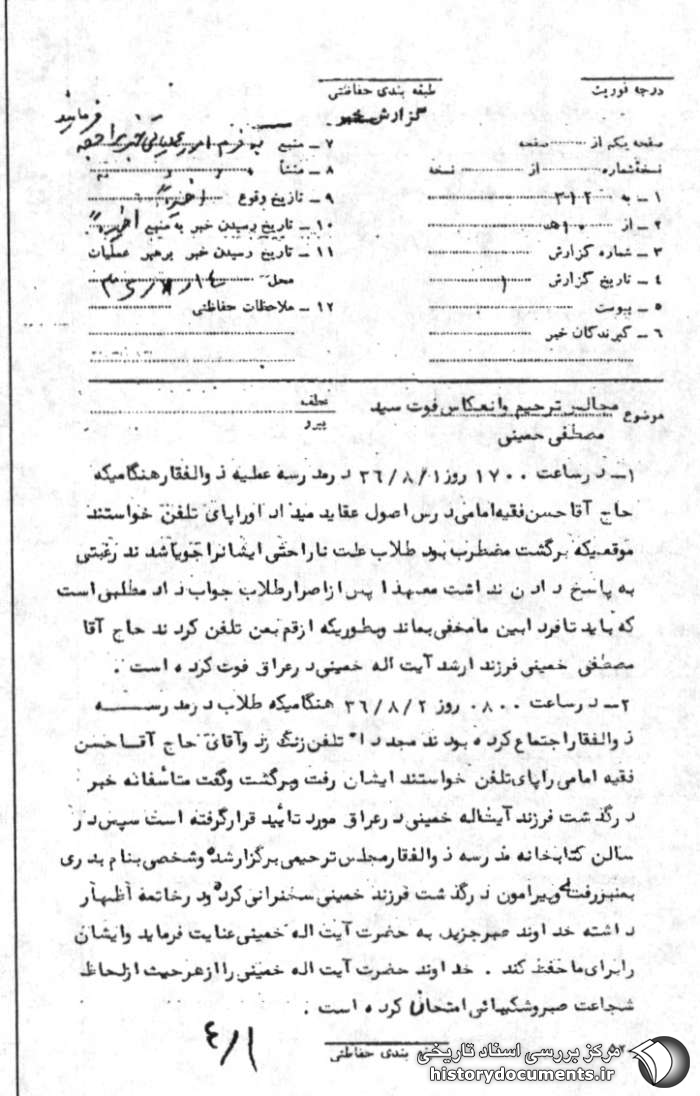 درجه فوریت
طبقه بندی حفاظتی
گزارش خبر
فرمایند
صفحه یکم از صفحه
نسخه شماره از نسخه
۱ - به ۳۱۲
۲ - از ۱۰هـ
۳ - شماره گزارش
۴ - تاریخ گزارش
۵ - پیوست
۶ - گیرندگان خبر
۷ - منبع
۸ - منشأ
۹ - تاریخ وقوع اخیرا"
۱۰ - تاریخ رسیدن خبر به منبع اخیرا"
۱۱ - تاریخ رسیدن خبر برهبر عملیات
محل
۱۲ - ملاحظات حفاظتی
موضوع مجالس ترحیم وانعکاس فوت سید
مصطفی خمینی
عطف
پیرو
۱- در ساعت ۱۷۰۰ روز ۳۶/۸/۱ در مدرسه عطیه ذوالفقار هنگامیکه
حاج آقا حسن فقیه امامی درس اصول عقاید میداد اورا پای تلفن خواستند
موقعیکه برگشت مضطرب بود طلاب علت ناراحتی ایشانرا جویا شدند رغبتی
به پاسخ دادن نداشت معهذا پس از اصرار طلاب جواب داد مطلبی است
که باید تا فردا بین ما مخفی بماند وبطوریکه از قم بمن تلفن کردند حاج آقا
مصطفی خمینی فرزند ارشد آیت اله خمینی در عراق فوت کرده است .
۲- در ساعت ۰۸۰۰ روز ۳۶/۸/۲ هنگامیکه طلاب در مدرسه
ذوالفقار اجتماع کرده بودند مجددا" تلفن زنگ زد وآقای حاج آقا حسن
فقیه امامی را پای تلفن خواستند ایشان رفت وبرگشت وگفت متاسفانه خبر
درگذشت فرزند آیت‌اله خمینی در عراق مورد تایید قرار گرفته است سپس در
سالن کتابخانه مدرسه ذوالفقار مجلس ترحیمی برگزار شد وشخصی بنام بدری
بمنبر رفت وپیرامون درگذشت فرزند خمینی سخنرانی کرد ودر خاتمه اظهار
داشته خداوند صبر جزیل به حضرت آیت اله خمینی عنایت فرماید وایشان
را برای ما حفظ کند . خداوند حضرت آیت اله خمینی را از هر حیث از لحاظ
شجاعت صبر وشکیبائی امتحان کرده است .
۴/۱
بندی حفاظتی
مرکز بررسی اسناد تاریخی
historydocuments.ir